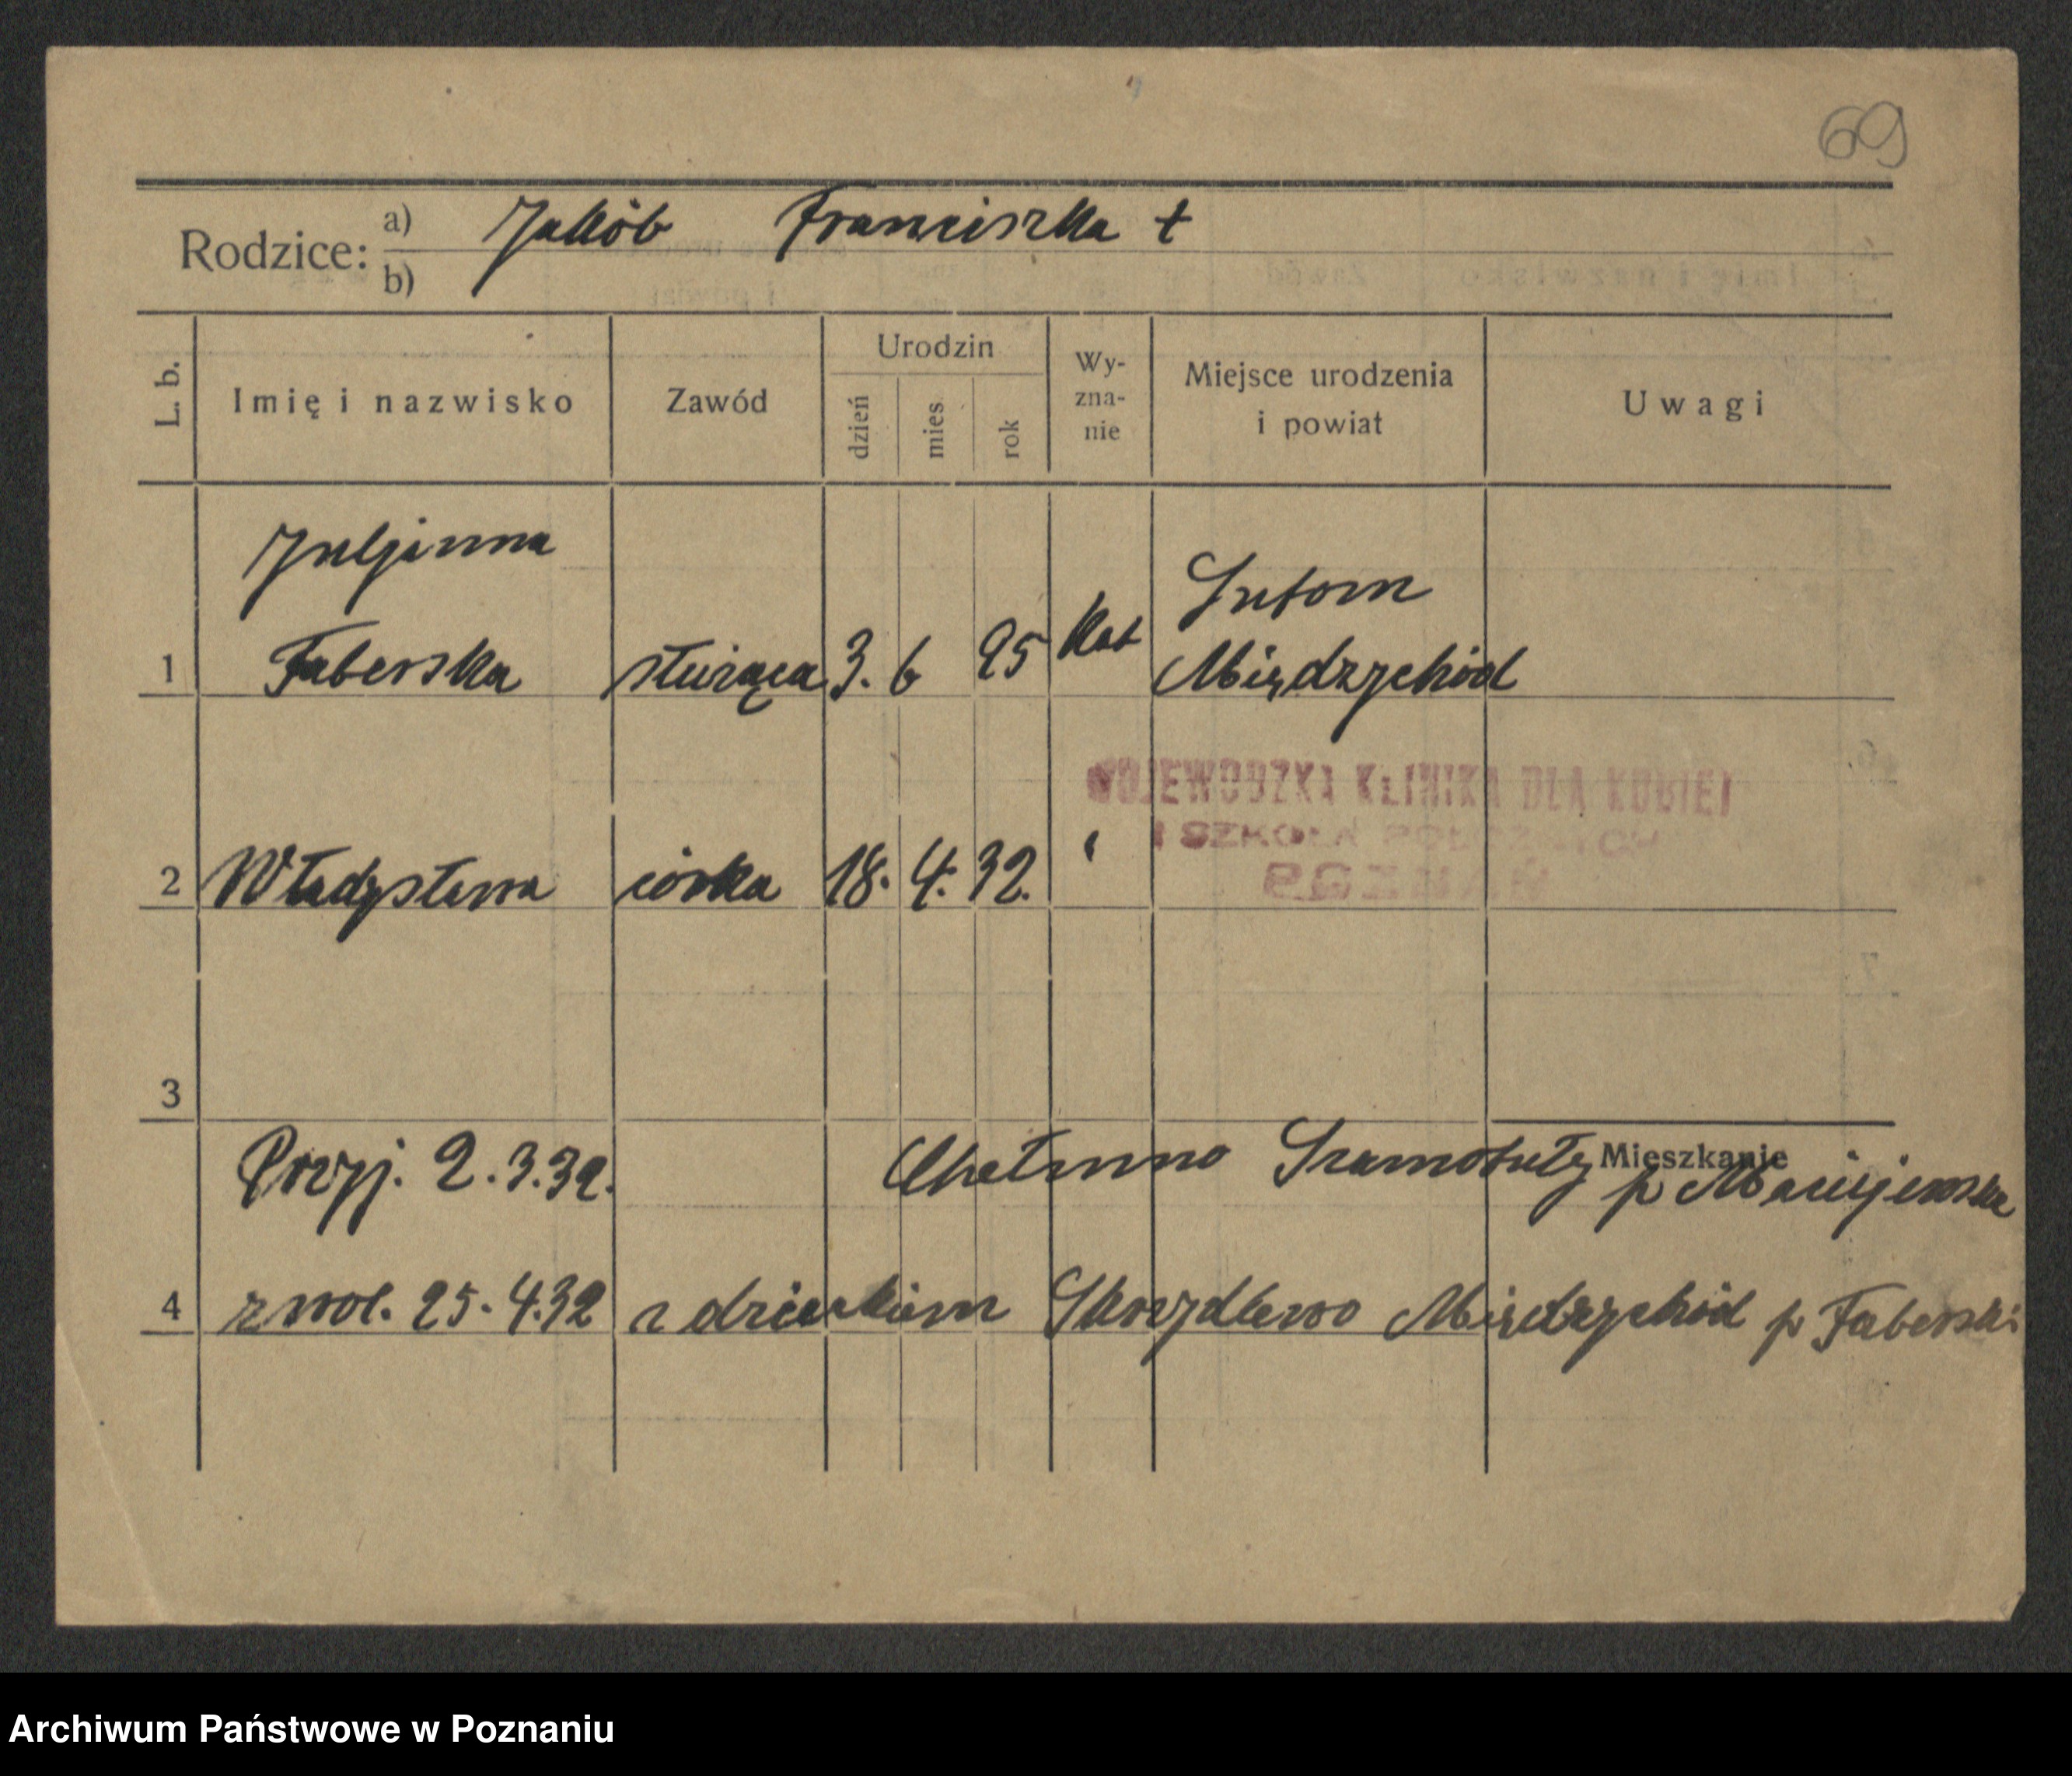 69
Rodzice: a) Jakób Franciszka †
b)
L. b. Imię i nazwisko Zawód Urodzin dzień mies. rok Wy-zna-nie Miejsce urodzenia i powiat Uwagi
Juljanna Lutom
1 Faberska służąca 3. 6 95 Kat Międzychód
WOJEWÓDZKA KLINIKA DLA KOBIET
I SZKOŁA POŁOŻNYCH
POZNAŃ
2 Władysława córka 18. 4. 32. "
3
Mieszkanie
Przyj. 2.3.32. Chełmno Szamotuły p Maciejewska
4 zwol. 25.4.32 z dzieckiem Skrzydlewo Międzychód p Faberski
Archiwum Państwowe w Poznaniu